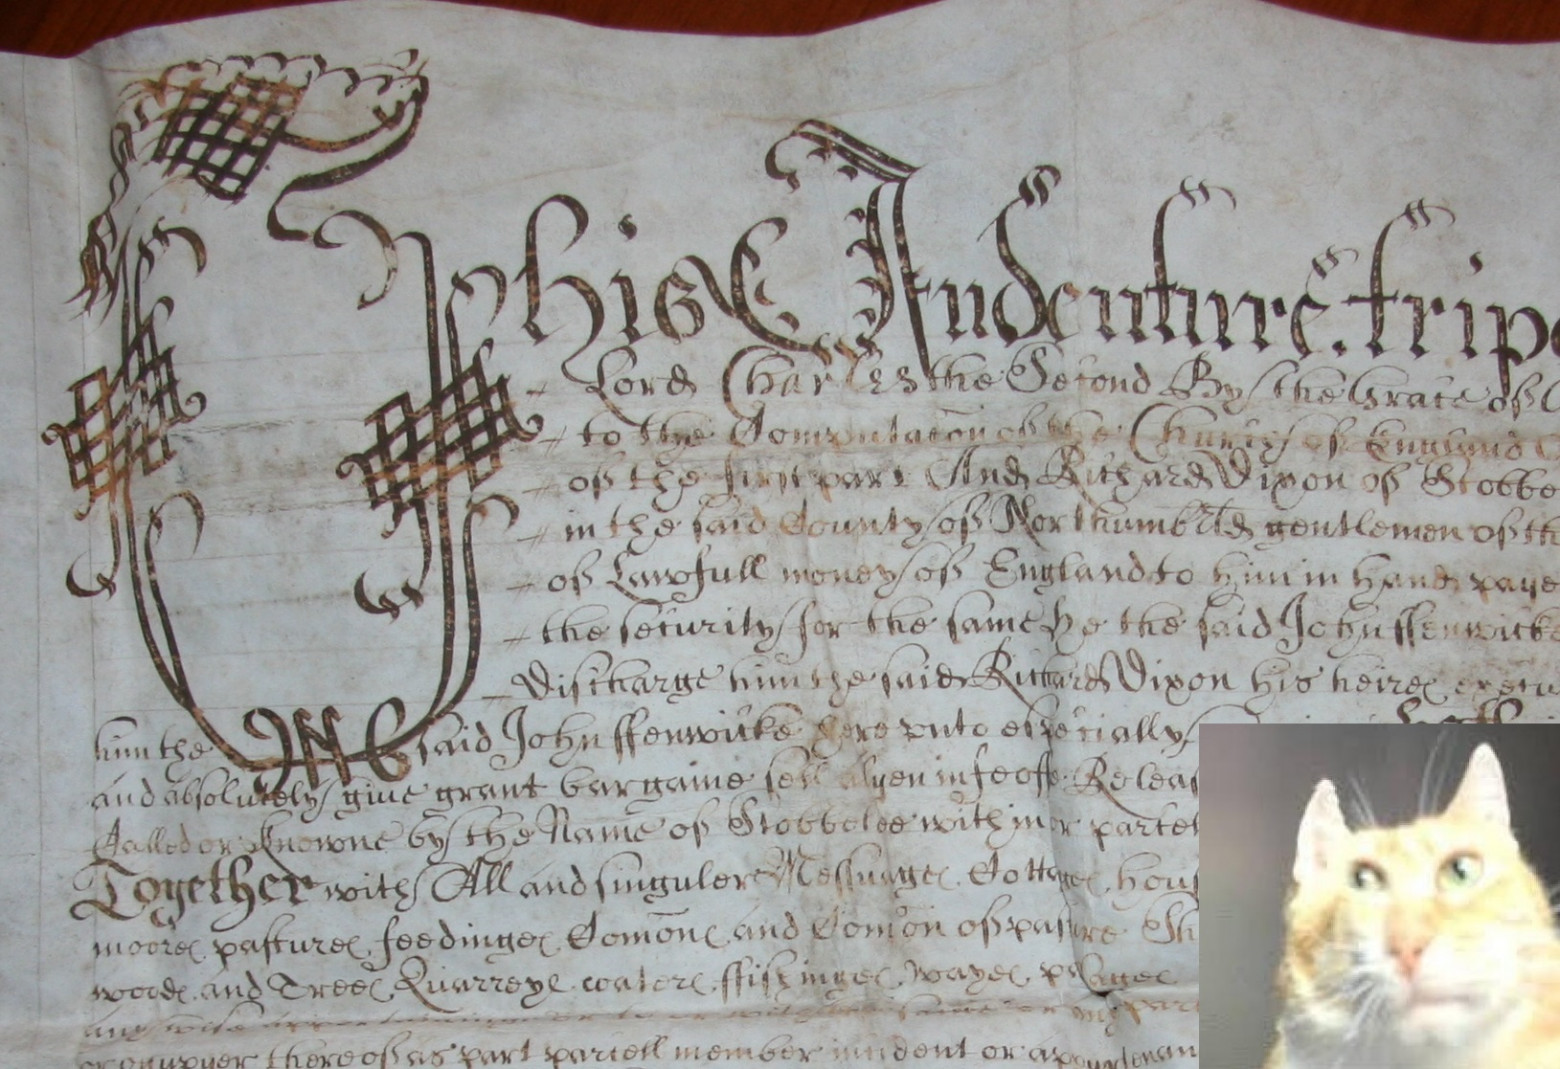 This Indenture. trip
Lord Charles the Second By the Grace of
to the Computacon of the Church of England
of the first part And Richard Dixon of Stobbe
in the said County of Northumbrld gentlemen of th
of Lawfull money of England to him in hand paye
the security for the same he the said John ffenwicke
Discharge him the said Richard Dixon his heires execu
him the said John ffenwicke here unto especially
and absolutely give grant bargaine sell alyen infeoffe Releas
Called or knowne by the Name of Stobbelee within or parcel
Together with All and singuler Messuages Cottages hous
moores pastures feedinges Comons and Comon of pasture
woods and Trees Quarreys waters ffishinges wayes
occupyer thereof as part parcell member incident or appurtenan